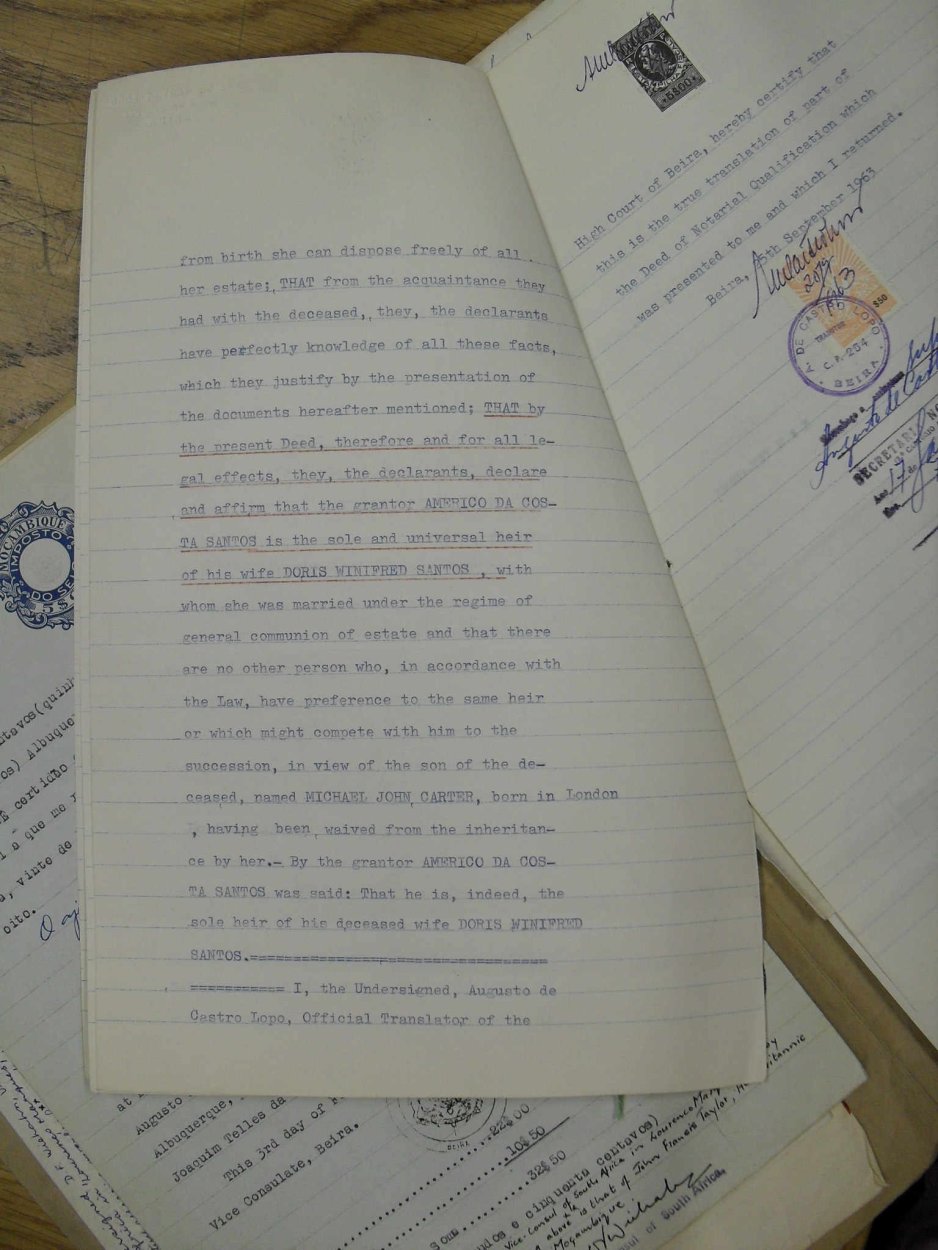 from birth she can dispose freely of all
her estate; THAT from the acquaintance they
had with the deceased, they, the declarants
have perfectly knowledge of all these facts,
which they justify by the presentation of
the documents hereafter mentioned; THAT by
the present Deed, therefore and for all le-
gal effects, they, the declarants, declare
and affirm that the grantor AMERICO DA COS-
TA SANTOS is the sole and universal heir
of his wife DORIS WINIFRED SANTOS , with
whom she was married under the regime of
general communion of estate and that there
are no other person who, in accordance with
the Law, have preference to the same heir
or which might compete with him to the
succession, in view of the son of the de-
ceased, named MICHAEL JOHN CARTER, born in London
, having been waived from the inheritan-
ce by her.- By the grantor AMERICO DA COS-
TA SANTOS was said: That he is, indeed, the
sole heir of his deceased wife DORIS WINIFRED
SANTOS.==================================
=========== I, the Undersigned, Augusto de
Castro Lopo, Official Translator of the
5$00
High Court of Beira, hereby certify that
this is the true translation of part of
the Deed of Notarial Qualification which
was presented to me and which I returned.
Beira, 5th September 1963
$50
A. DE CASTRO LOPO
TRANSLATOR
C. P. 254
BEIRA
Augusto de
SECRETARIA
17
MOÇAMBIQUE
IMPOSTO
DO SELO
5$
Albuque
certidão
que me
vinte de
oito.
at
Augusto
Albuquerque,
Joaquim Telles da
This 3rd day of
Vice Consulate, Beira.
BEIRA
22$00
10$50
32$50
e cinquenta centavos)
Vice-Consul of South Africa in Lourenco Marques
above is that of John Francis Taylor, H
Britannic
Mocambique
of South Africa